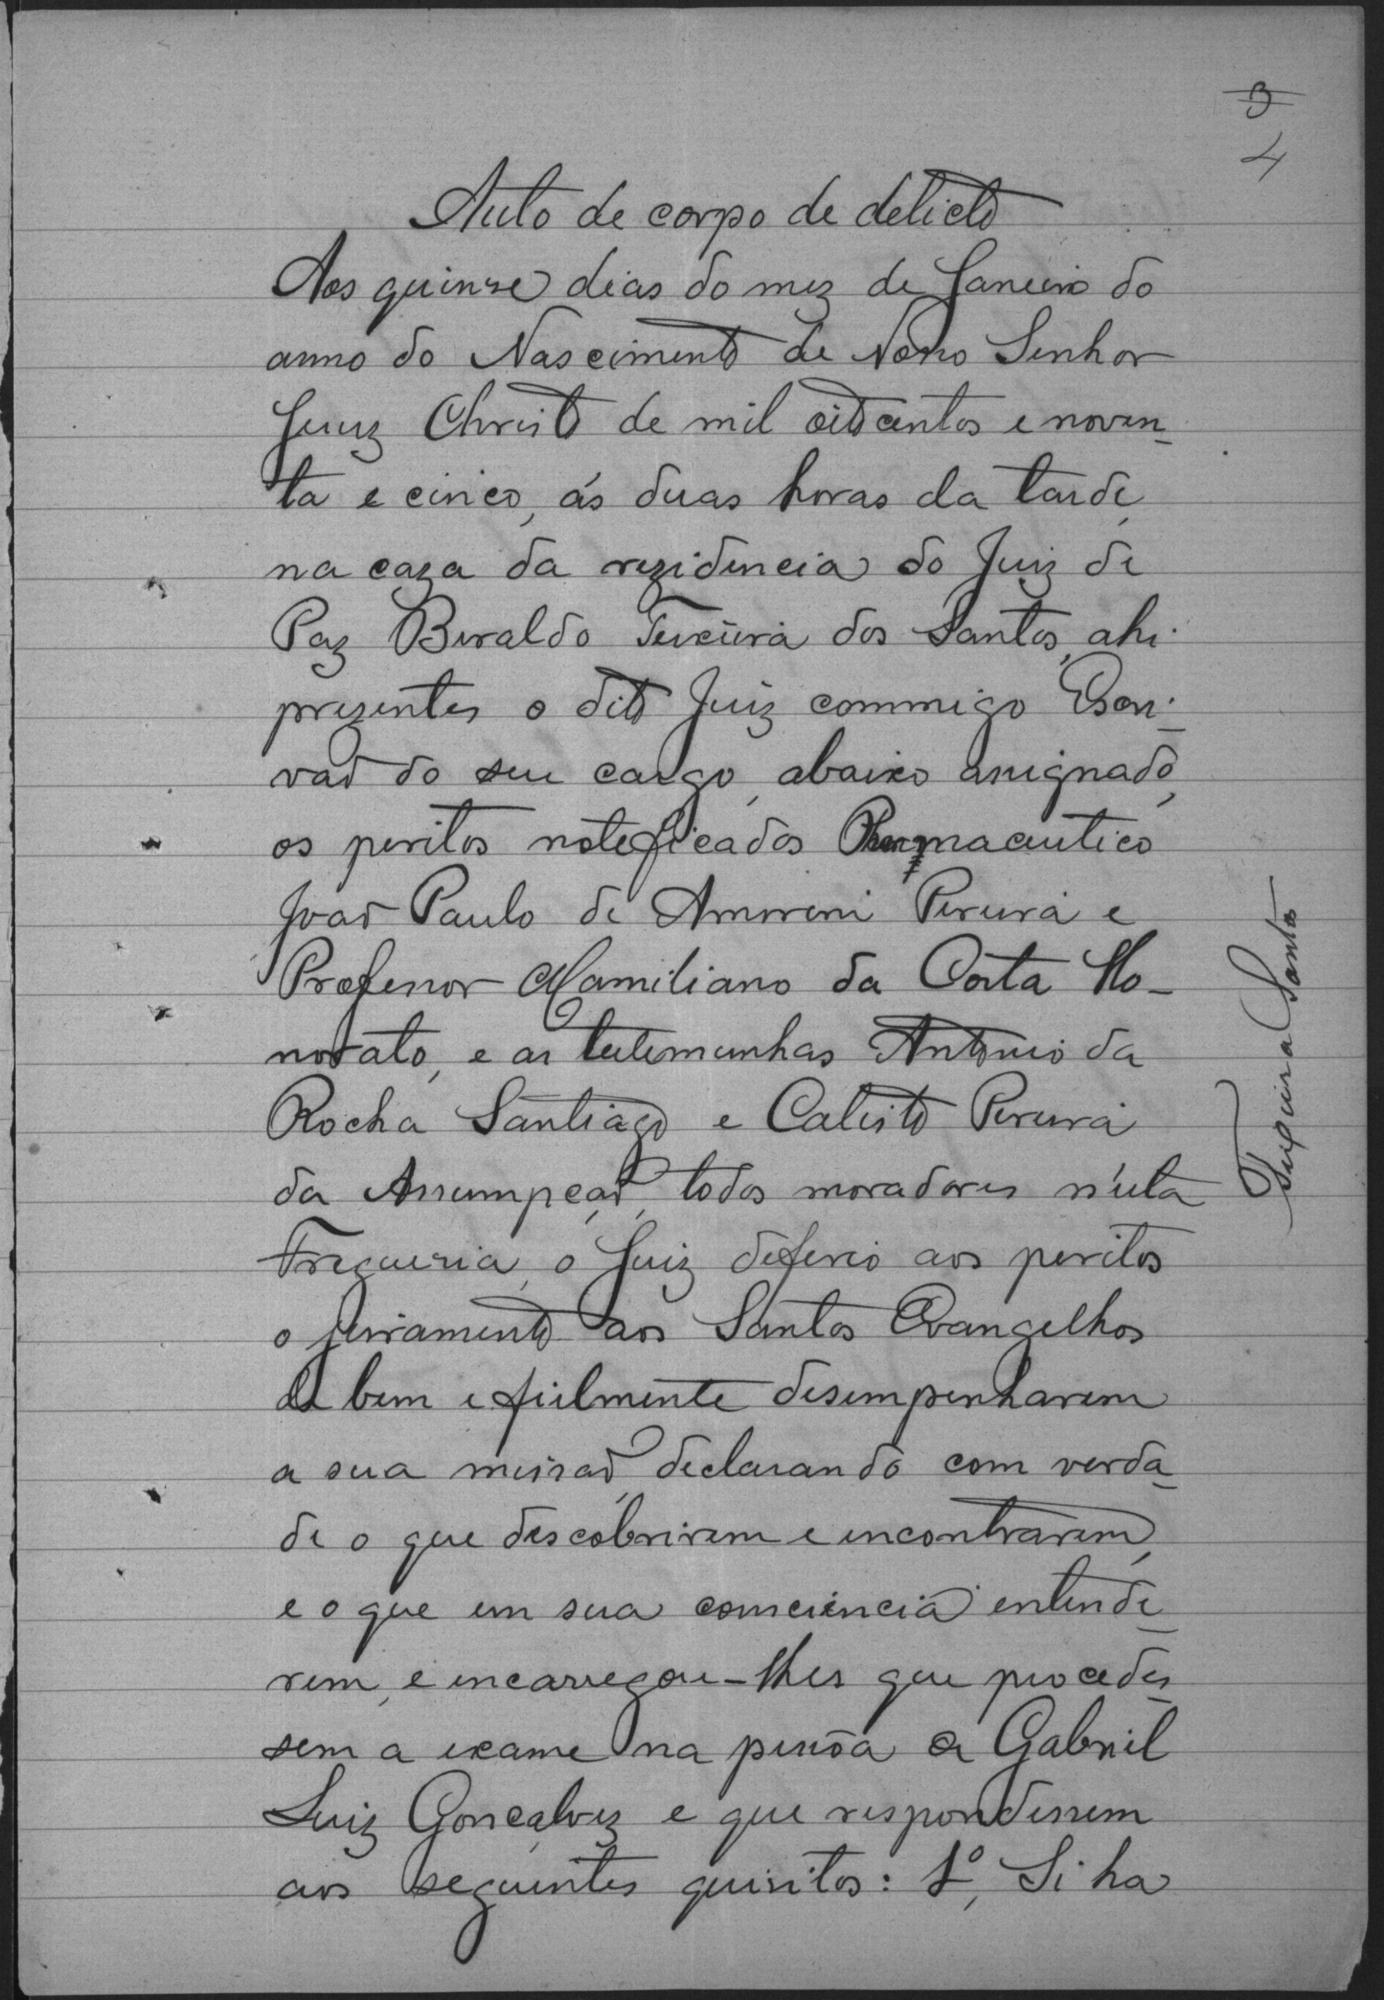 3
4
Auto de corpo de delicto
Aos quinze dias do mez de Janeiro do
anno do Nascimento de Nosso Senhor
Jezuz Christo de mil oitocentos e noven-
ta e cinco, ás duas horas da tarde,
na caza da rezidencia do Juiz de
Paz Beraldo Teixeira dos Santos, ahi
prezentes o dito Juiz commigo Escri-
vaõ do seu cargo, abaixo assignado,
os peritos noteficados Pharmaceutico
Joaõ Paulo de Amorem Pereira e
Professor Mamiliano da Costa Ho-
norato, e as testemunhas Antonio da
Rocha Santiago e Calisto Pereira
da Assumpçaõ, todos moradores n'esta
Freguezia, o Juiz deferio aos peritos
o juramento aos Santos Evangelhos
de bem e fielmente desempenharem
a sua missaõ, declarando com verda-
de o que descobrirem e encontrarem,
e o que em sua consciencia entende-
rem, e encarregou-lhes que procedes-
sem a exame na pessôa de Gabriel
Luiz Gonçalvez e que respondessem
aos seguintes quisitos: 1º, Si ha
Teixeira Santos